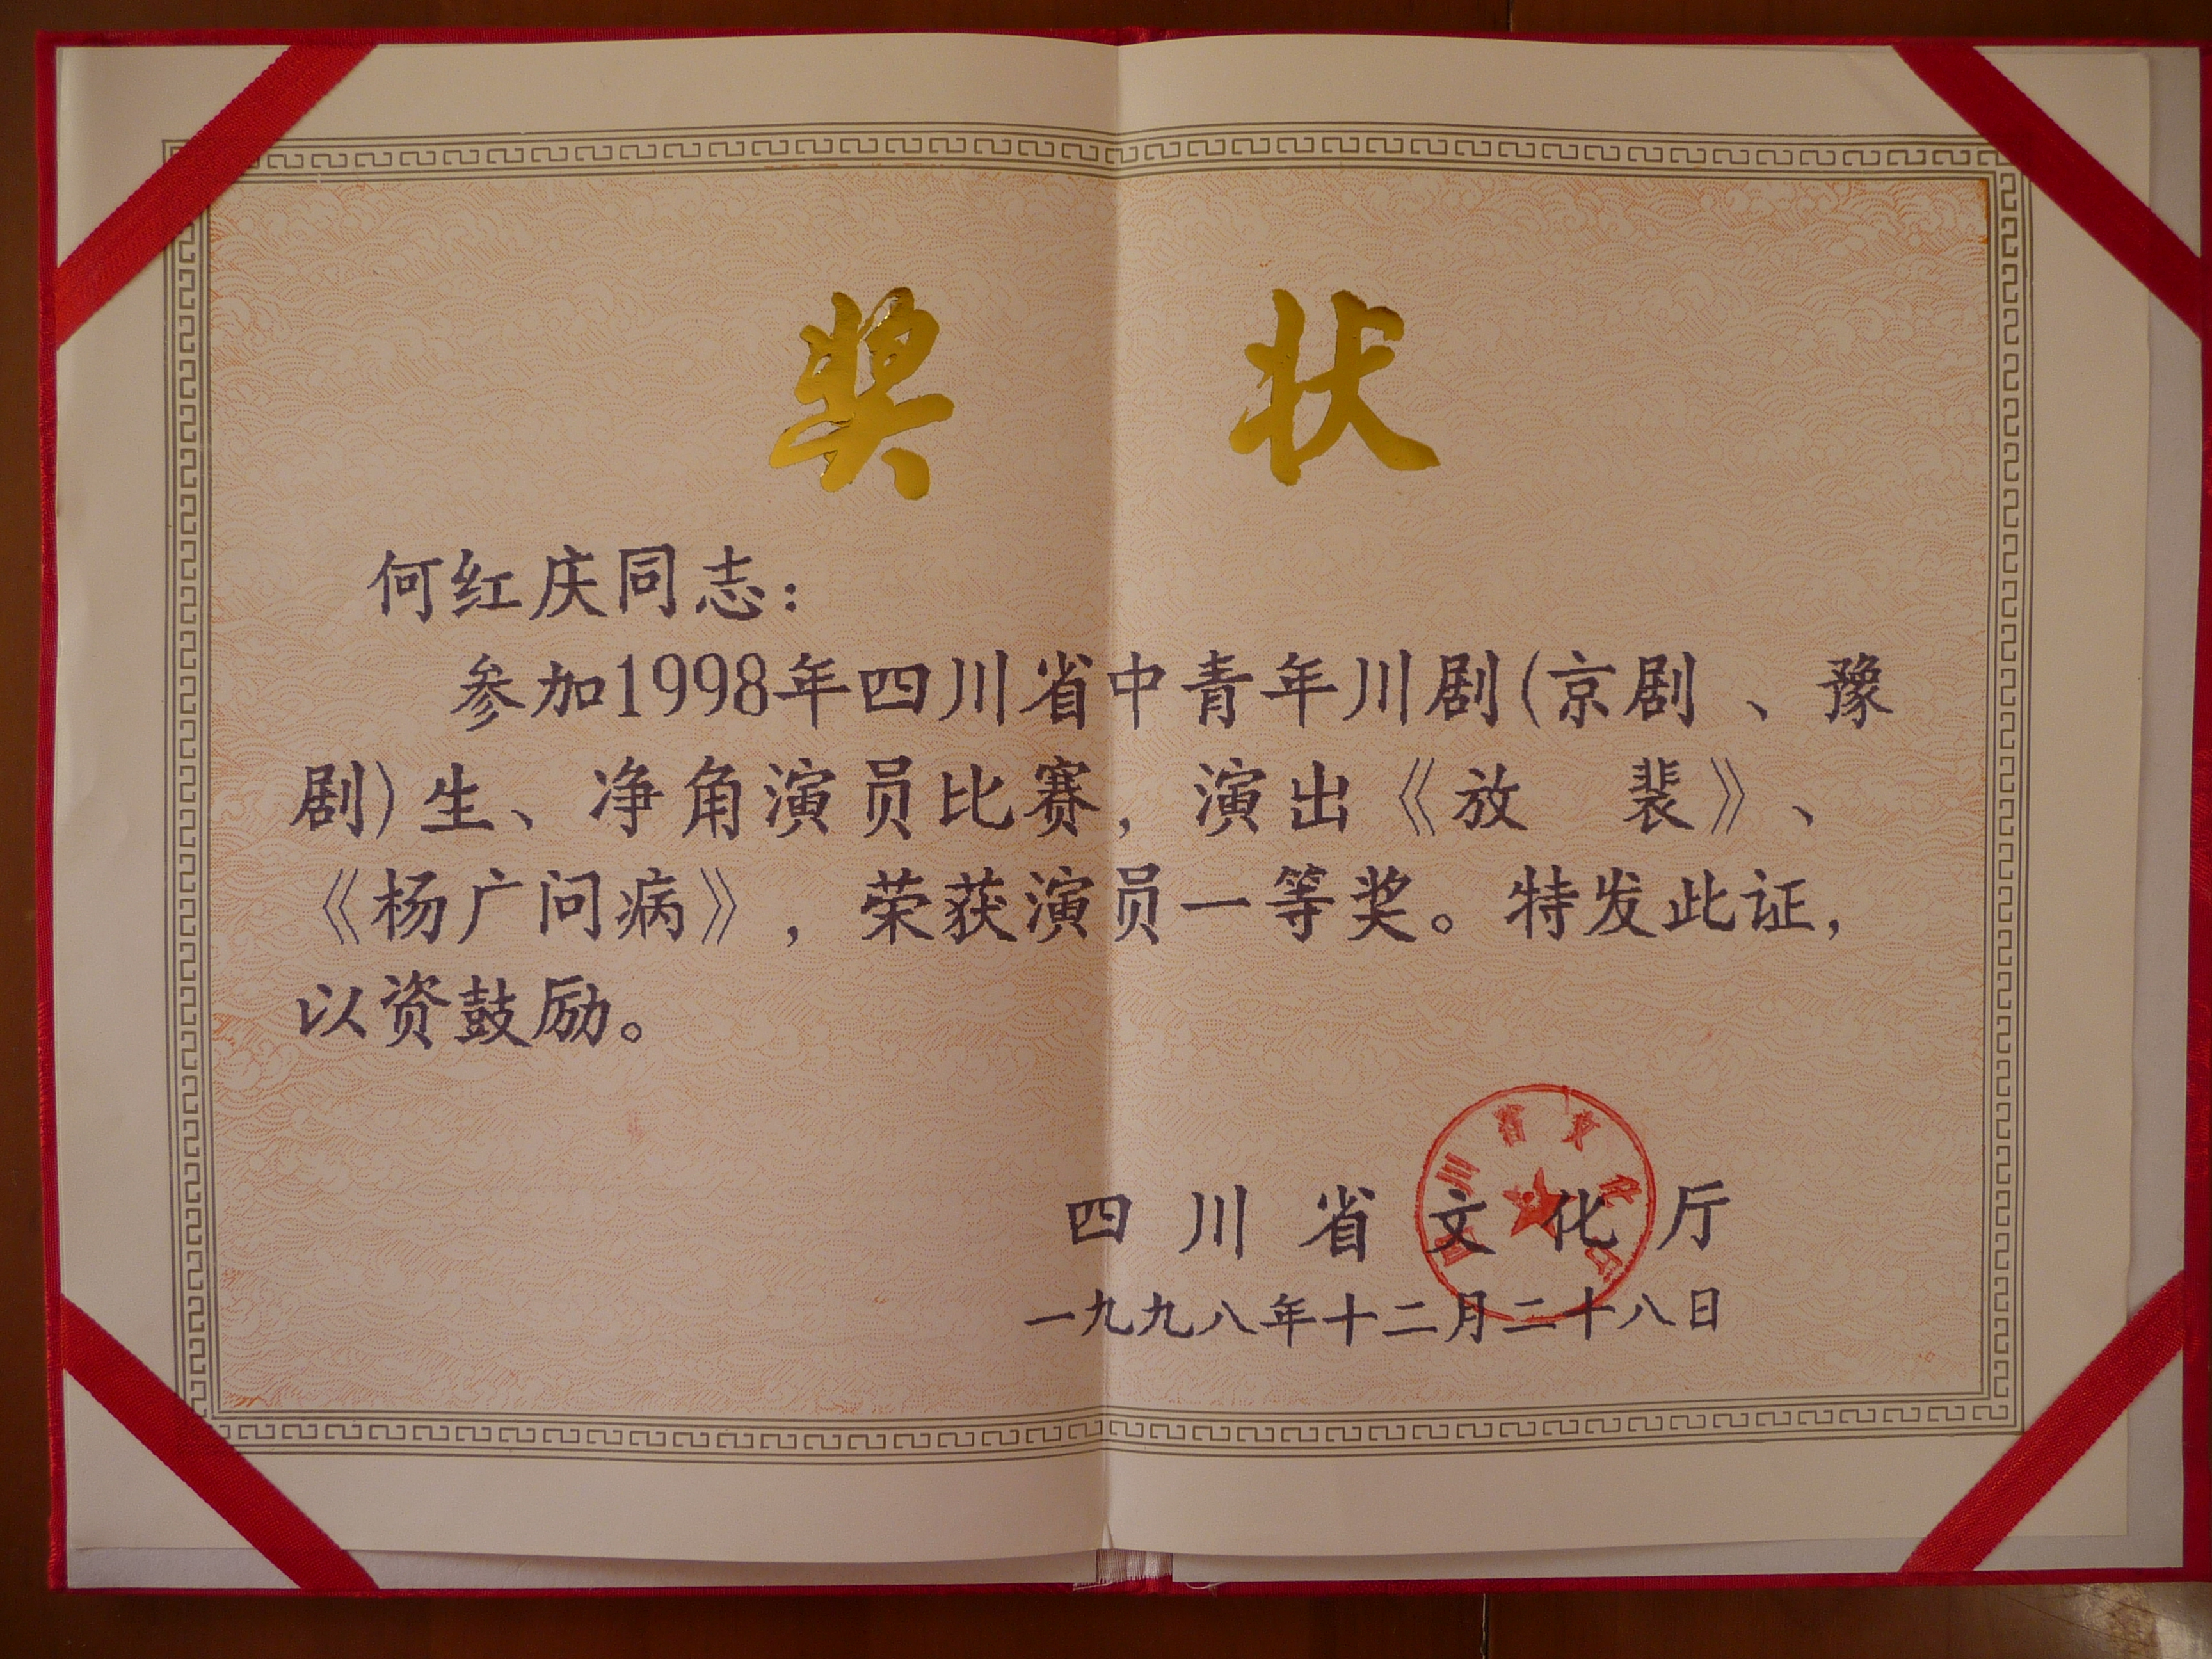 奖 状
何红庆同志：
参加1998年四川省中青年川剧(京剧 、豫
剧)生、净角演员比赛，演出《放　裴》、
《杨广问病》，荣获演员一等奖。特发此证，
以资鼓励。
四川省文化厅
四川省文化厅
一九九八年十二月二十八日